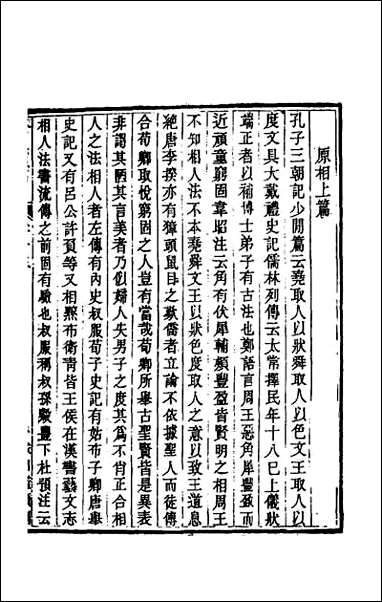 原相上篇
孔子三朝記少閒篇云堯取人以狀舜取人以色文王取人以
度文具大戴禮史記儒林列傳云太常擇民年十八巳上儀狀
端正者以補博士弟子有古法也鄭語言周王惡角犀豐盈而
近頑童窮固韋昭注云角有伏犀輔頰豐盈皆賢明之相周王
不知相人法不本堯舜文王以狀色度取人之意以致王道息
絕唐李揆亦有獐頭鼠目之歎儒者立論不依據聖人而徒傳
合荀卿取悅窮固之人豈有當哉荀卿所舉古聖賢皆是異表
非謂其陋其言美者乃似婦人失男子之度其爲不肖正合相
人之法相人者左傳有內史叔服荀子史記有姑布子卿唐舉
史記又有呂公許負等又相黥布衛青皆王侯在漢書藝文志
相人法書流傳之前固有驗也叔服稱叔孫穀豐下杜預注云